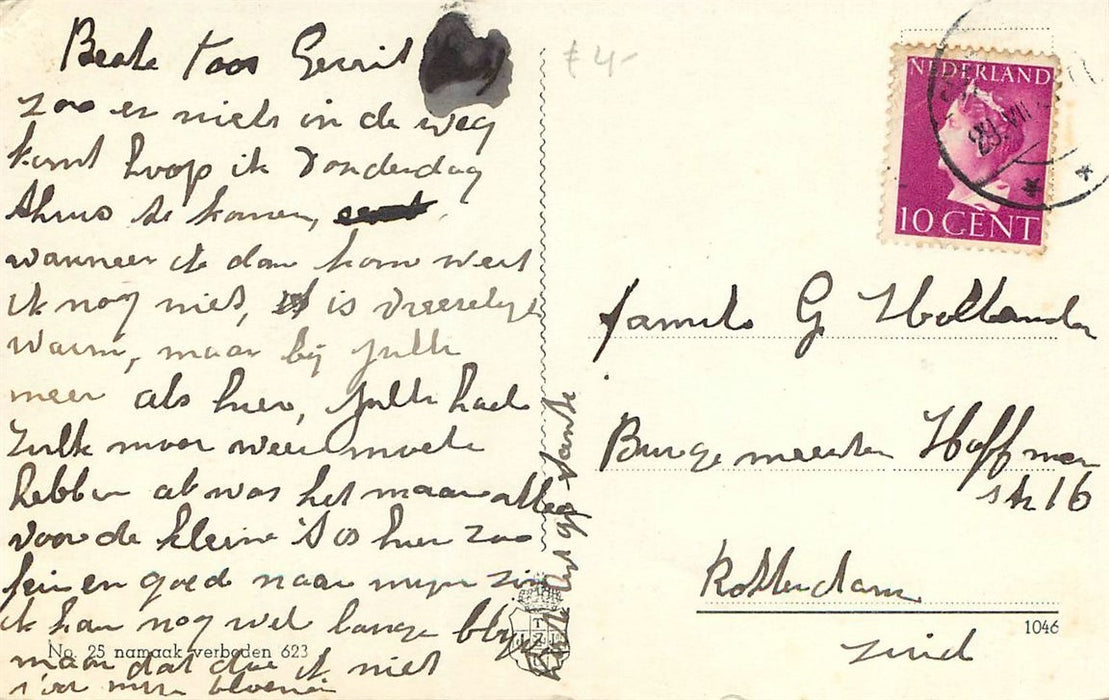 Beste Toos Gerrit
zoo er niets in de weg
komt hoop ik Donderdag
thuis te komen,
wanneer ik dan kom weet
ik nog niet, is vreeselijk
warm, maar bij jullie
meer als hier, jullie had
zulk mooi weer moete
hebben al was het maar alleen
voor de kleine 't is hier zoo
fein en goed naar mijn zin
ik kan nog wel lange blijve
maar dat doe ik niet
voor mijn
No. 25 namaak verboden 623
£ 4-
NEDERLAND
29 VII
10 CENT
familie G Hollander
Burgemeester Hoffman
str 16
Rotterdam
zuid
1046